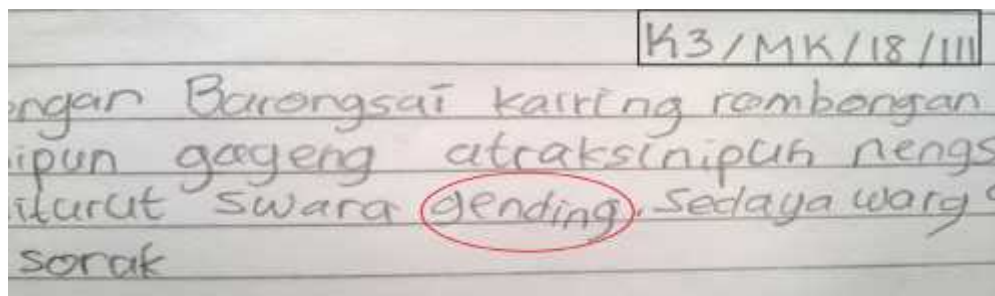 K3/MK/18/III
ongan Barongsai kairing rombongan
ipun gayeng atraksinipun nengs
iturut swara gending. Sedaya warg
sorak